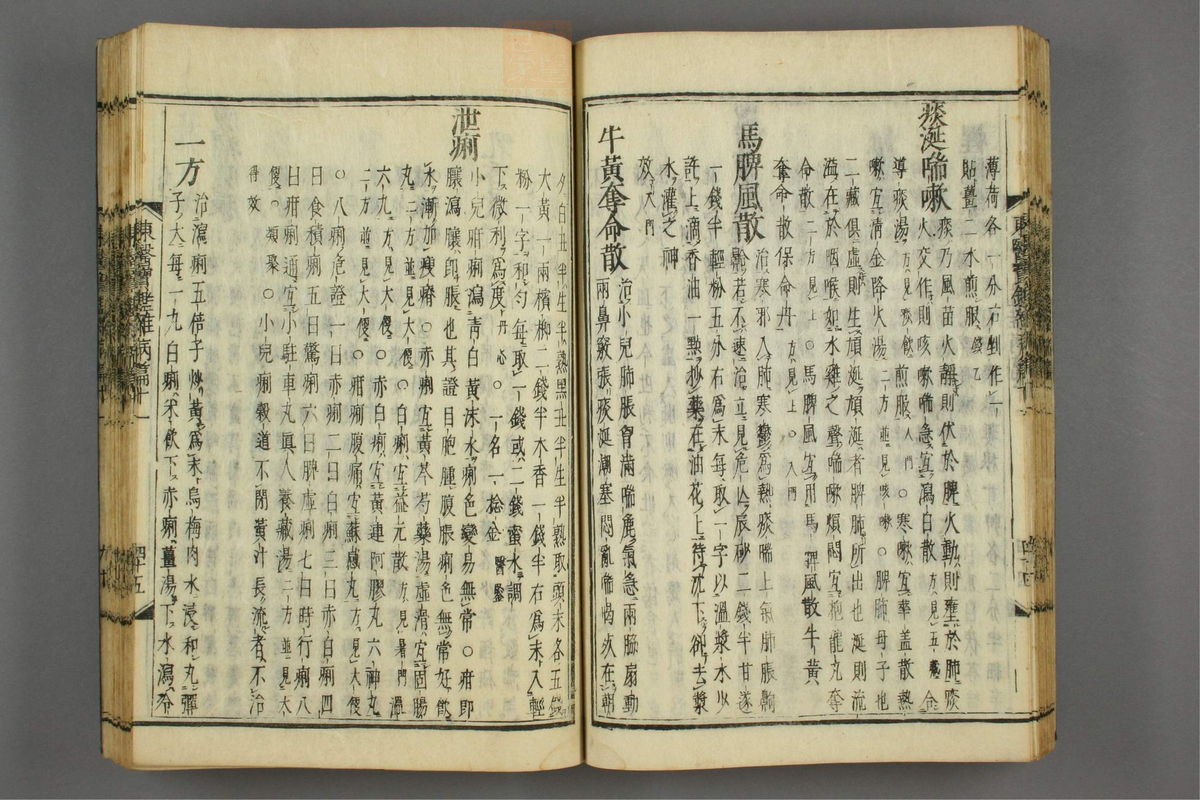 薄荷各一分右剉作一
貼薑二水煎服錢乙
痰涎喘嗽 痰乃風苗火靜則伏於脾火動則壅於肺痰
火交作則咳嗽喘急宜瀉白散方見五臟金
導痰湯方見風飮煎服入門○寒嗽宜華盖散熱
嗽宜淸金降火湯二方並見咳嗽○脾肺母子也
二藏俱虛則生頑涎頑涎者脾肺所出也涎則流
溢在於咽喉如水雞之聲喘嗽煩悶宜抱龍丸奪
命散二方見上○馬脾風宜用馬脾風散牛黃
奪命散保命丹方見上○入門
馬脾風散 治寒邪入肺寒鬱爲熱痰喘上氣肺脹胸
齡若不速治立見危亾辰砂二錢半甘遂
一錢半輕粉五分右爲末每取一字以溫漿水少
許上滴香油一點抄藥在油花上待沈下却去漿
水灌之神
效入門
牛黃奪命散 治小兒肺脹胷滿喘麁氣急兩脇扇動
兩鼻竅張痰涎潮塞悶亂喘喝㱏在朝
夕白丑半生半熟黑丑半生半熟取頭末各五錢
大黃一兩檳榔二錢半木香一錢半右爲末入輕
粉一字和勻每取一錢或二錢蜜水調
下微利爲度丹心○一名一捻金醫鑒
泄痢 小兒疳痢瀉靑白黃沫水痢色變易無常○疳即
膿瀉臟卽脹也其證目胞腫腹脹痢色無常好飮
水漸加瘦瘠○赤痢宜黃芩芍藥湯虛滑宜固腸
丸二方並見大便○白痢宜益元散方見暑門溫
六丸方見大便○赤白痢宜黃連阿膠丸六神丸
二方並見大便○疳痢腹痛宜蘇感丸方見大便
○八痢危證一曰赤痢二曰白痢三曰赤白痢四
曰食積痢五曰驚痢六曰脾虛痢七曰時行痢八
曰疳痢通宜小駐車丸眞人養藏湯二方並見大
便○類聚○小兒痢穀道不閉黃汁長流者不治
得效
一方 治瀉痢五倍子炒黃爲末烏梅肉水浸和丸彈
子大每一丸白痢米飮下赤痢薑湯下水瀉冷
東醫寶鑑雜病篇十一
四十五